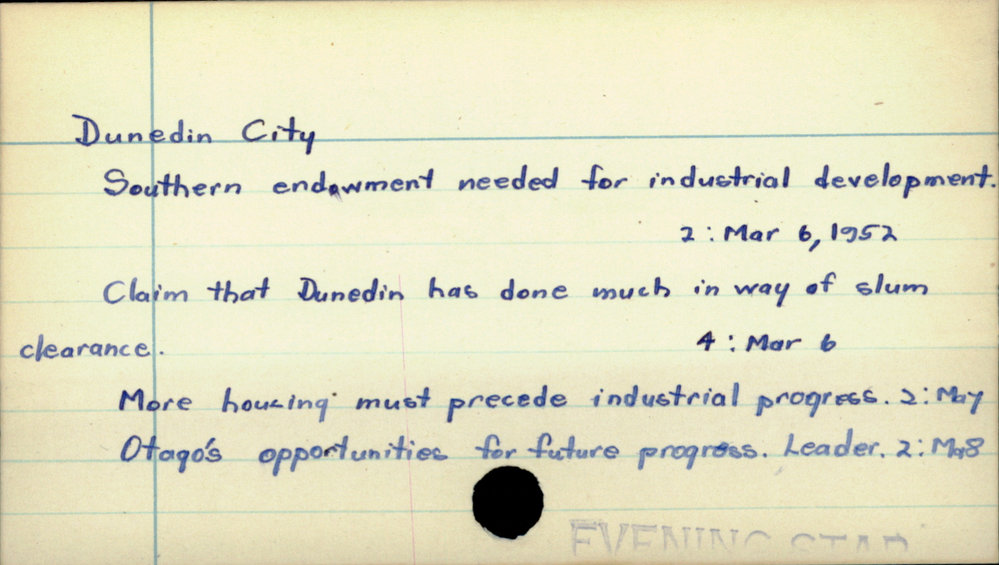 Dunedin City
Southern endowment needed for industrial development.
2 : Mar 6, 1952
Claim that Dunedin has done much in way of slum
clearance. 4 : Mar 6
More housing must precede industrial progress. 2: May
Otago's opportunities for future progress. Leader. 2: Ma8
EVENING STAR